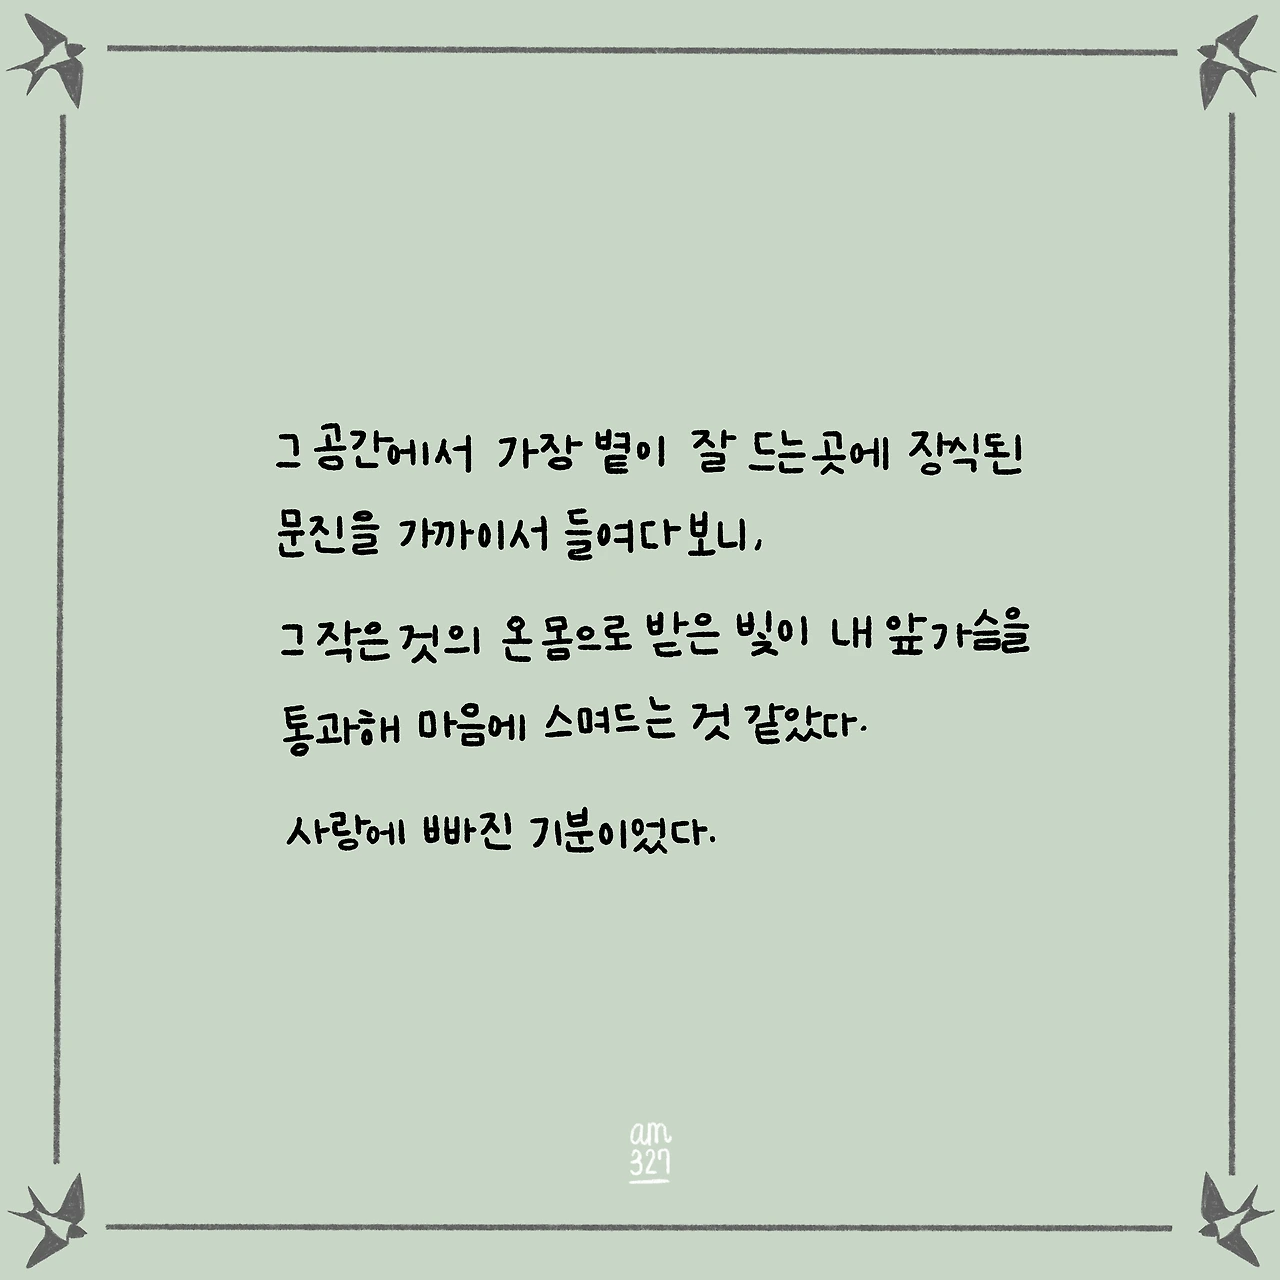 그 공간에서 가장 볕이 잘 드는 곳에 장식된
문진을 가까이서 들여다보니,
그 작은 것의 온몸으로 받은 빛이 내 앞가슴을
통과해 마음에 스며드는 것 같았다.
사랑에 빠진 기분이었다.
am
327